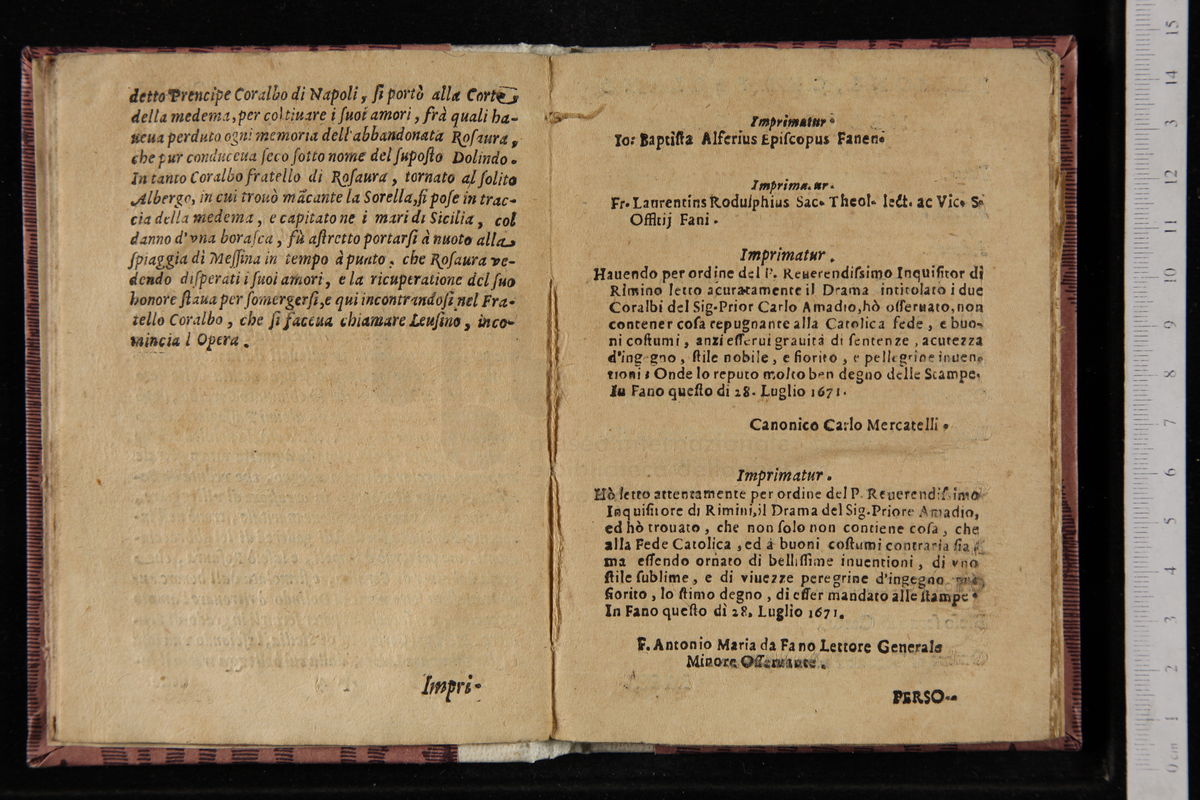 detto Prencipe Coralbo di Napoli, ſi portò alla Corte
della medema, per coltiuare i ſuoi amori, frà quali ha-
ueua perduto ogni memoria dell'abbandonata Roſaura,
che pur conduceua ſeco ſotto nome del ſupoſto Dolindo.
In tanto Coralbo fratello di Roſaura, tornato al ſolito
Albergo, in cui trouò mãcante la Sorella, ſi poſe in trac-
cia della medema, e capitatone i mari di Sicilia, col
danno d'vna boraſca, fù aſtretto portarſi à nuoto alla
ſpiaggia di Meſſina in tempo à punto, che Roſaura ve-
dendo diſperati i ſuoi amori, e la ricuperatione del ſuo
honore ſtaua per ſomergerſi, e qui incontrandoſi nel Fra-
tello Coralbo, che ſi faceua chiamare Leuſino, inco-
mincia l Opera.
Impri-
Imprimatur.
Io: Baptiſta Alferius Epiſcopus Fanen.
Imprimatur.
Fr. Laurentins Rodulphius Sac. Theol. lect. ac Vic. S.
Offitij Fani.
Imprimatur.
Hauendo per ordine del P. Reuerendiſsimo Inquiſitor di
Rimino letto acuratamente il Drama intitolato i due
Coralbi del Sig. Prior Carlo Amadio, hò oſſeruato, non
contener coſa repugnante alla Catolica fede, e buo-
ni coſtumi, anzi eſſerui grauità di ſentenze, acutezza
d'ingegno, ſtile nobile, e fiorito, e pellegrine inuen-
tioni: Onde lo reputo molto ben degno delle Stampe.
In Fano queſto dì 28. Luglio 1671.
Canonico Carlo Mercatelli.
Imprimatur.
Hò letto attentamente per ordine del P. Reuerendiſsimo
Inquiſitore di Rimini, il Drama del Sig. Priore Amadio,
ed hò trouato, che non ſolo non contiene coſa, che
alla Fede Catolica, ed à buoni coſtumi contraria ſia
ma eſſendo ornato di belliſſime inuentioni, di vno
ſtile ſublime, e di viuezze peregrine d'ingegno
fiorito, lo ſtimo degno, di eſſer mandato alle ſtampe.
In Fano queſto dì 28. Luglio 1671.
F. Antonio Maria da Fano Lettore Generale
Minore Oſſeruante.
PERSO-
0 cm 1 2 3 4 5 6 7 8 9 10 11 12 13 14 15